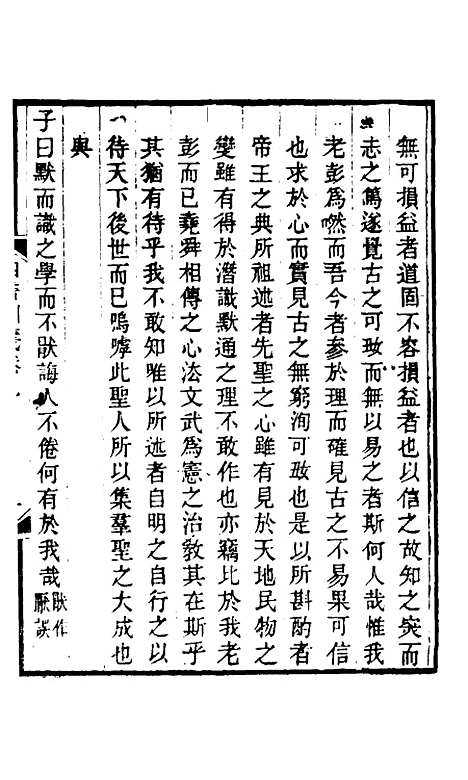 無可損益者道固不容損益者也以信之故知之突而
志之篤遂覺古之可攷而無以易之者斯何人哉惟我
老彭爲㗳而吾今者參於理而確見古之不易果可信
也求於心而實見古之無窮洵可攷也是以所斟酌者
帝王之典所祖述者先聖之心雖有見於天地民物之
變雖有得於潛識默通之理不敢作也亦竊比於我老
彭而已堯舜相傳之心法文武爲憲之治教其在斯乎
其猶有待乎我不敢知唯以所述者自明之自行之以
待天下後世而已嗚嘑此聖人所以集羣聖之大成也
與
子曰默而識之學而不猒誨人不倦何有於我哉猒作
厭誤